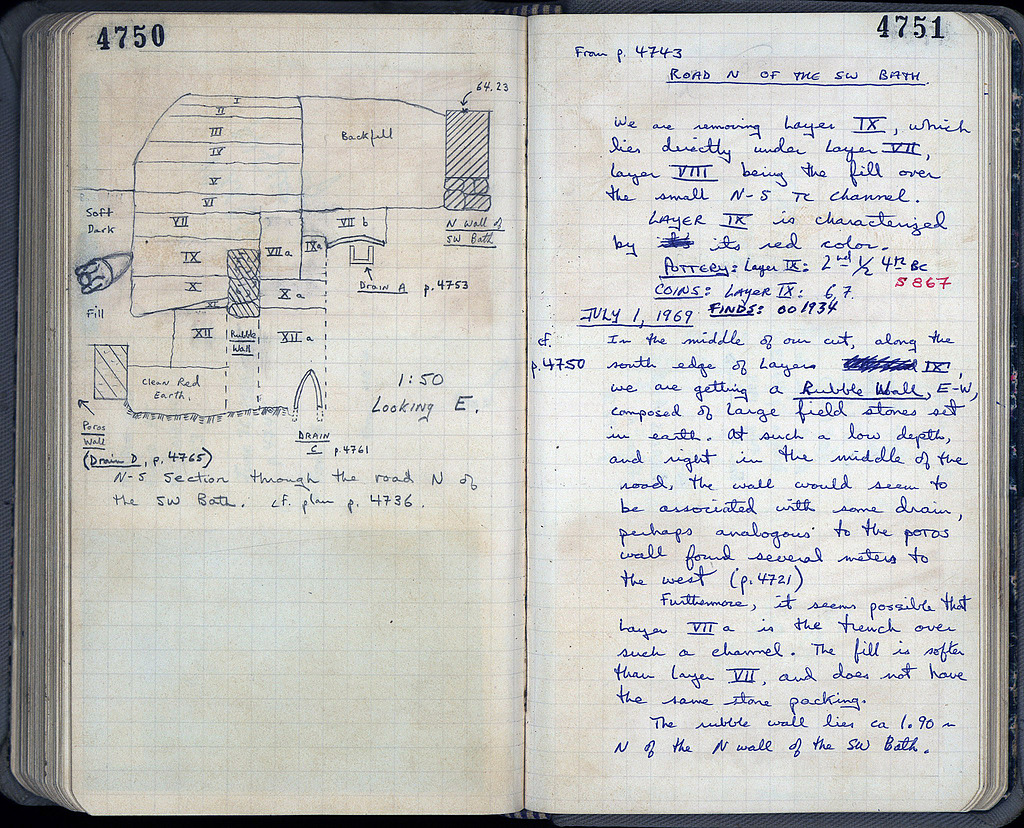 4750
64.23
I
II
III
IV
V
VI
Backfill
Soft
Dark
Fill
VII
VII b
N Wall of
SW Bath
IX
VII a
IXa
Drain A p. 4753
X
X a
XI
XII
Rubble
Wall
XII a
Clean Red
Earth.
1:50
Looking E.
Poros
Wall
(Drain D, p. 4765)
DRAIN
C p. 4761
N-S Section through the road N of
the SW Bath. cf. plan p. 4736.
4751
From p. 4743
ROAD N OF THE SW BATH.
We are removing Layer IX, which
lies directly under Layer VII,
Layer VIII being the fill over
the small N-S TC channel.
LAYER IX is characterized
by its red color.
POTTERY: Layer IX: 2nd 1/2 4th BC
S 867
COINS: LAYER IX: 6, 7
JULY 1, 1969 FINDS: 001934
cf.
p. 4750
In the middle of our cut, along the
south edge of Layers IX,
we are getting a Rubble Wall, E-W,
composed of large field stones set
in earth. At such a low depth,
and right in the middle of the
road, the wall would seem to
be associated with some drain,
perhaps analogous to the poros
wall found several meters to
the west (p. 4721)
Furthermore, it seems possible that
Layer VII a is the trench over
such a channel. The fill is softer
than Layer VII, and does not have
the same stone packing.
The rubble wall lies ca 1.90 m
N of the N wall of the SW Bath.